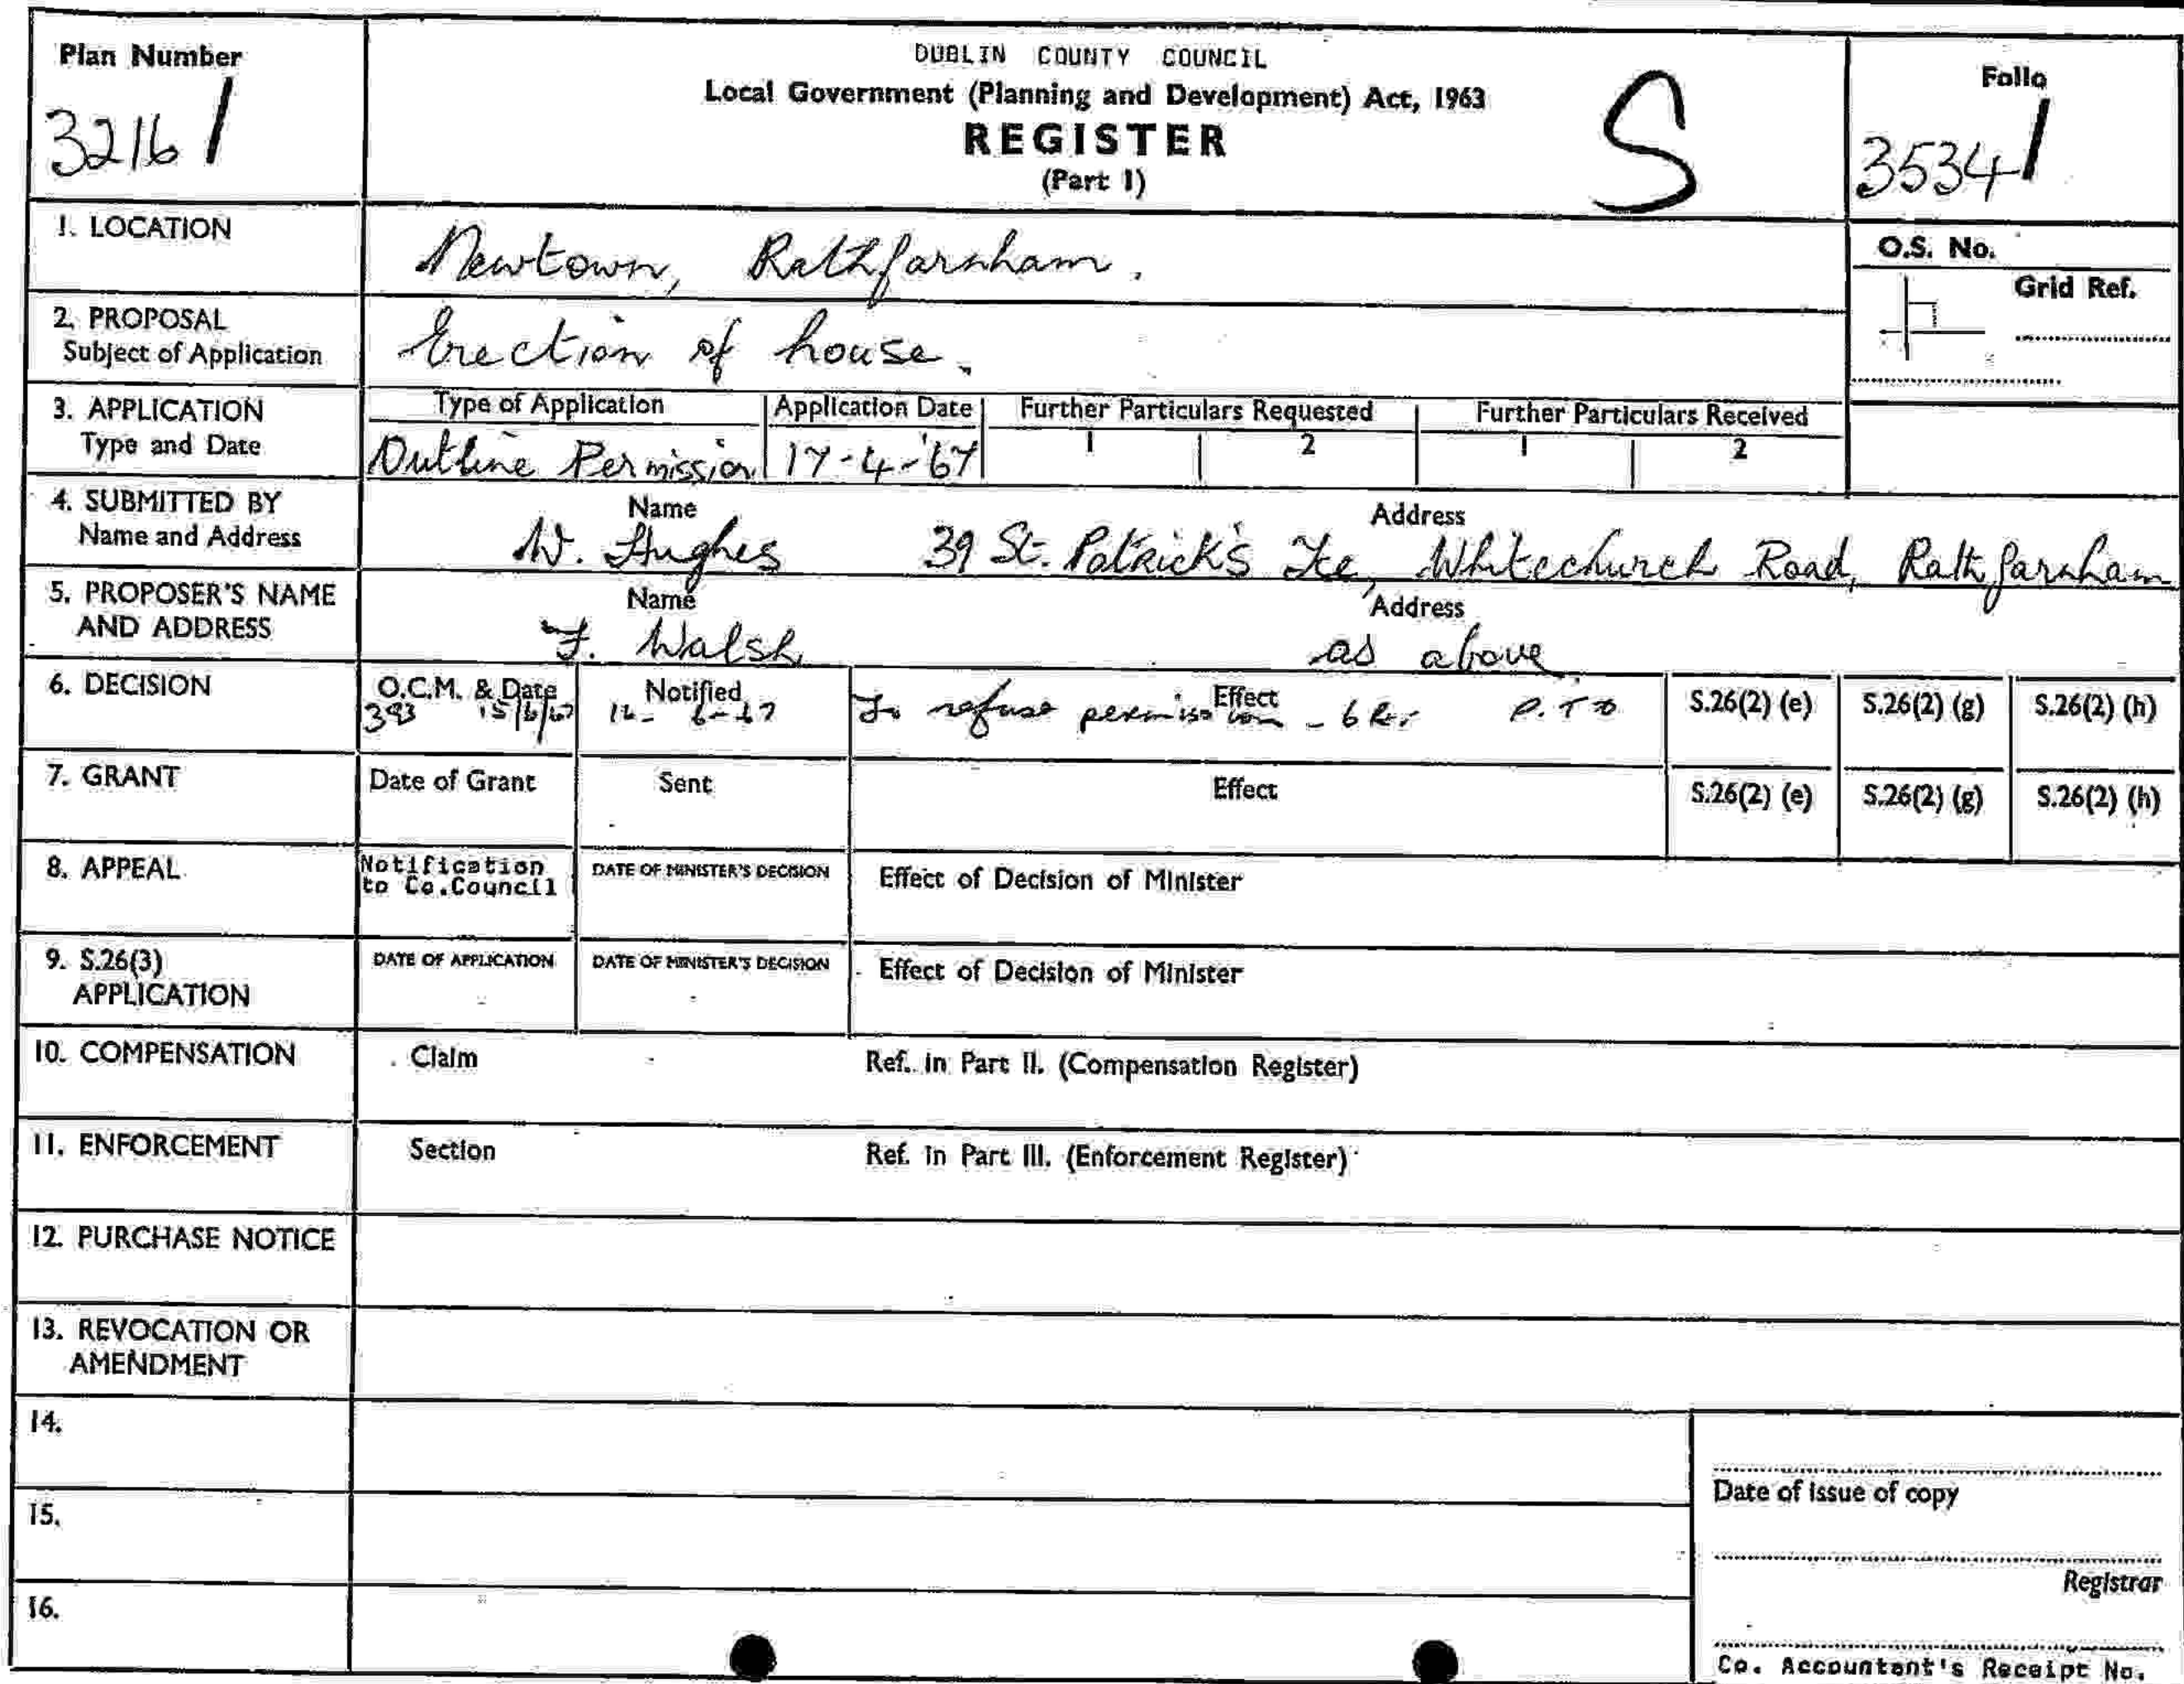 Plan Number
3216/
DUBLIN COUNTY COUNCIL
Local Government (Planning and Development) Act, 1963
REGISTER
(Part I)
S
Folio
3534/
1. LOCATION
Newtown, Rathfarnham.
O.S. No.
Grid Ref.
2. PROPOSAL
Subject of Application
Erection of house.
3. APPLICATION
Type and Date
Type of Application
Outline Permission
Application Date
17-4-'67
Further Particulars Requested
1 2
Further Particulars Received
1 2
4. SUBMITTED BY
Name and Address
Name
W. Hughes
Address
39 St. Patrick's Tce, Whitechurch Road, Rathfarnham
5. PROPOSER'S NAME
AND ADDRESS
Name
F. Walsh
Address
as above
6. DECISION
O.C.M. & Date
393 15/6/67
Notified
16-6-67
Effect
To refuse permission - 6 P.T.O
S.26(2) (e) S.26(2) (g) S.26(2) (h)
7. GRANT
Date of Grant
Sent
Effect
S.26(2) (e) S.26(2) (g) S.26(2) (h)
8. APPEAL
Notification
to Co.Council
DATE OF MINISTER'S DECISION
Effect of Decision of Minister
9. S.26(3)
APPLICATION
DATE OF APPLICATION
DATE OF MINISTER'S DECISION
Effect of Decision of Minister
10. COMPENSATION
Claim
Ref. in Part II. (Compensation Register)
11. ENFORCEMENT
Section
Ref. in Part III. (Enforcement Register)
12. PURCHASE NOTICE
13. REVOCATION OR
AMENDMENT
14.
15.
16.
Date of issue of copy
Registrar
Co. Accountant's Receipt No.